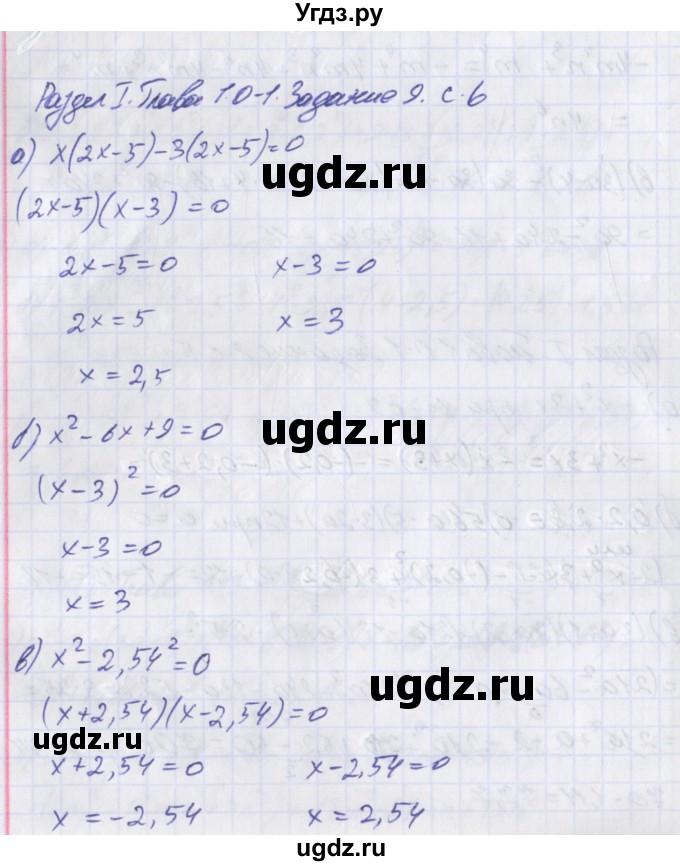 Угдз.ру
Раздел I. Глава 1. 0-1. Задание 9. с. 6
а) x(2x-5)-3(2x-5)=0
ugdz.ru
(2x-5)(x-3)=0
2x-5=0 x-3=0
2x=5 x=3
x=2,5
ugdz.ru
б) x²-6x+9=0
(x-3)²=0
ugdz.ru
x-3=0
x=3
в) x²-2,54²=0
ugdz.ru
(x+2,54)(x-2,54)=0
ugdz.ru
x+2,54=0 x-2,54=0
x=-2,54 x=2,54
ugdz.ru